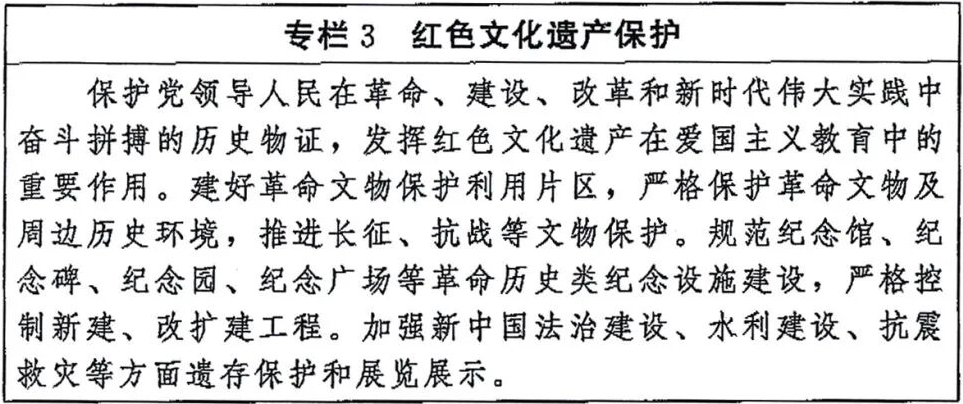 专栏 3 红色文化遗产保护
保护党领导人民在革命、建设、改革和新时代伟大实践中
奋斗拼搏的历史物证，发挥红色文化遗产在爱国主义教育中的
重要作用。建好革命文物保护利用片区，严格保护革命文物及
周边历史环境，推进长征、抗战等文物保护。规范纪念馆、纪
念碑、纪念园、纪念广场等革命历史类纪念设施建设，严格控
制新建、改扩建工程。加强新中国法治建设、水利建设、抗震
救灾等方面遗存保护和展览展示。